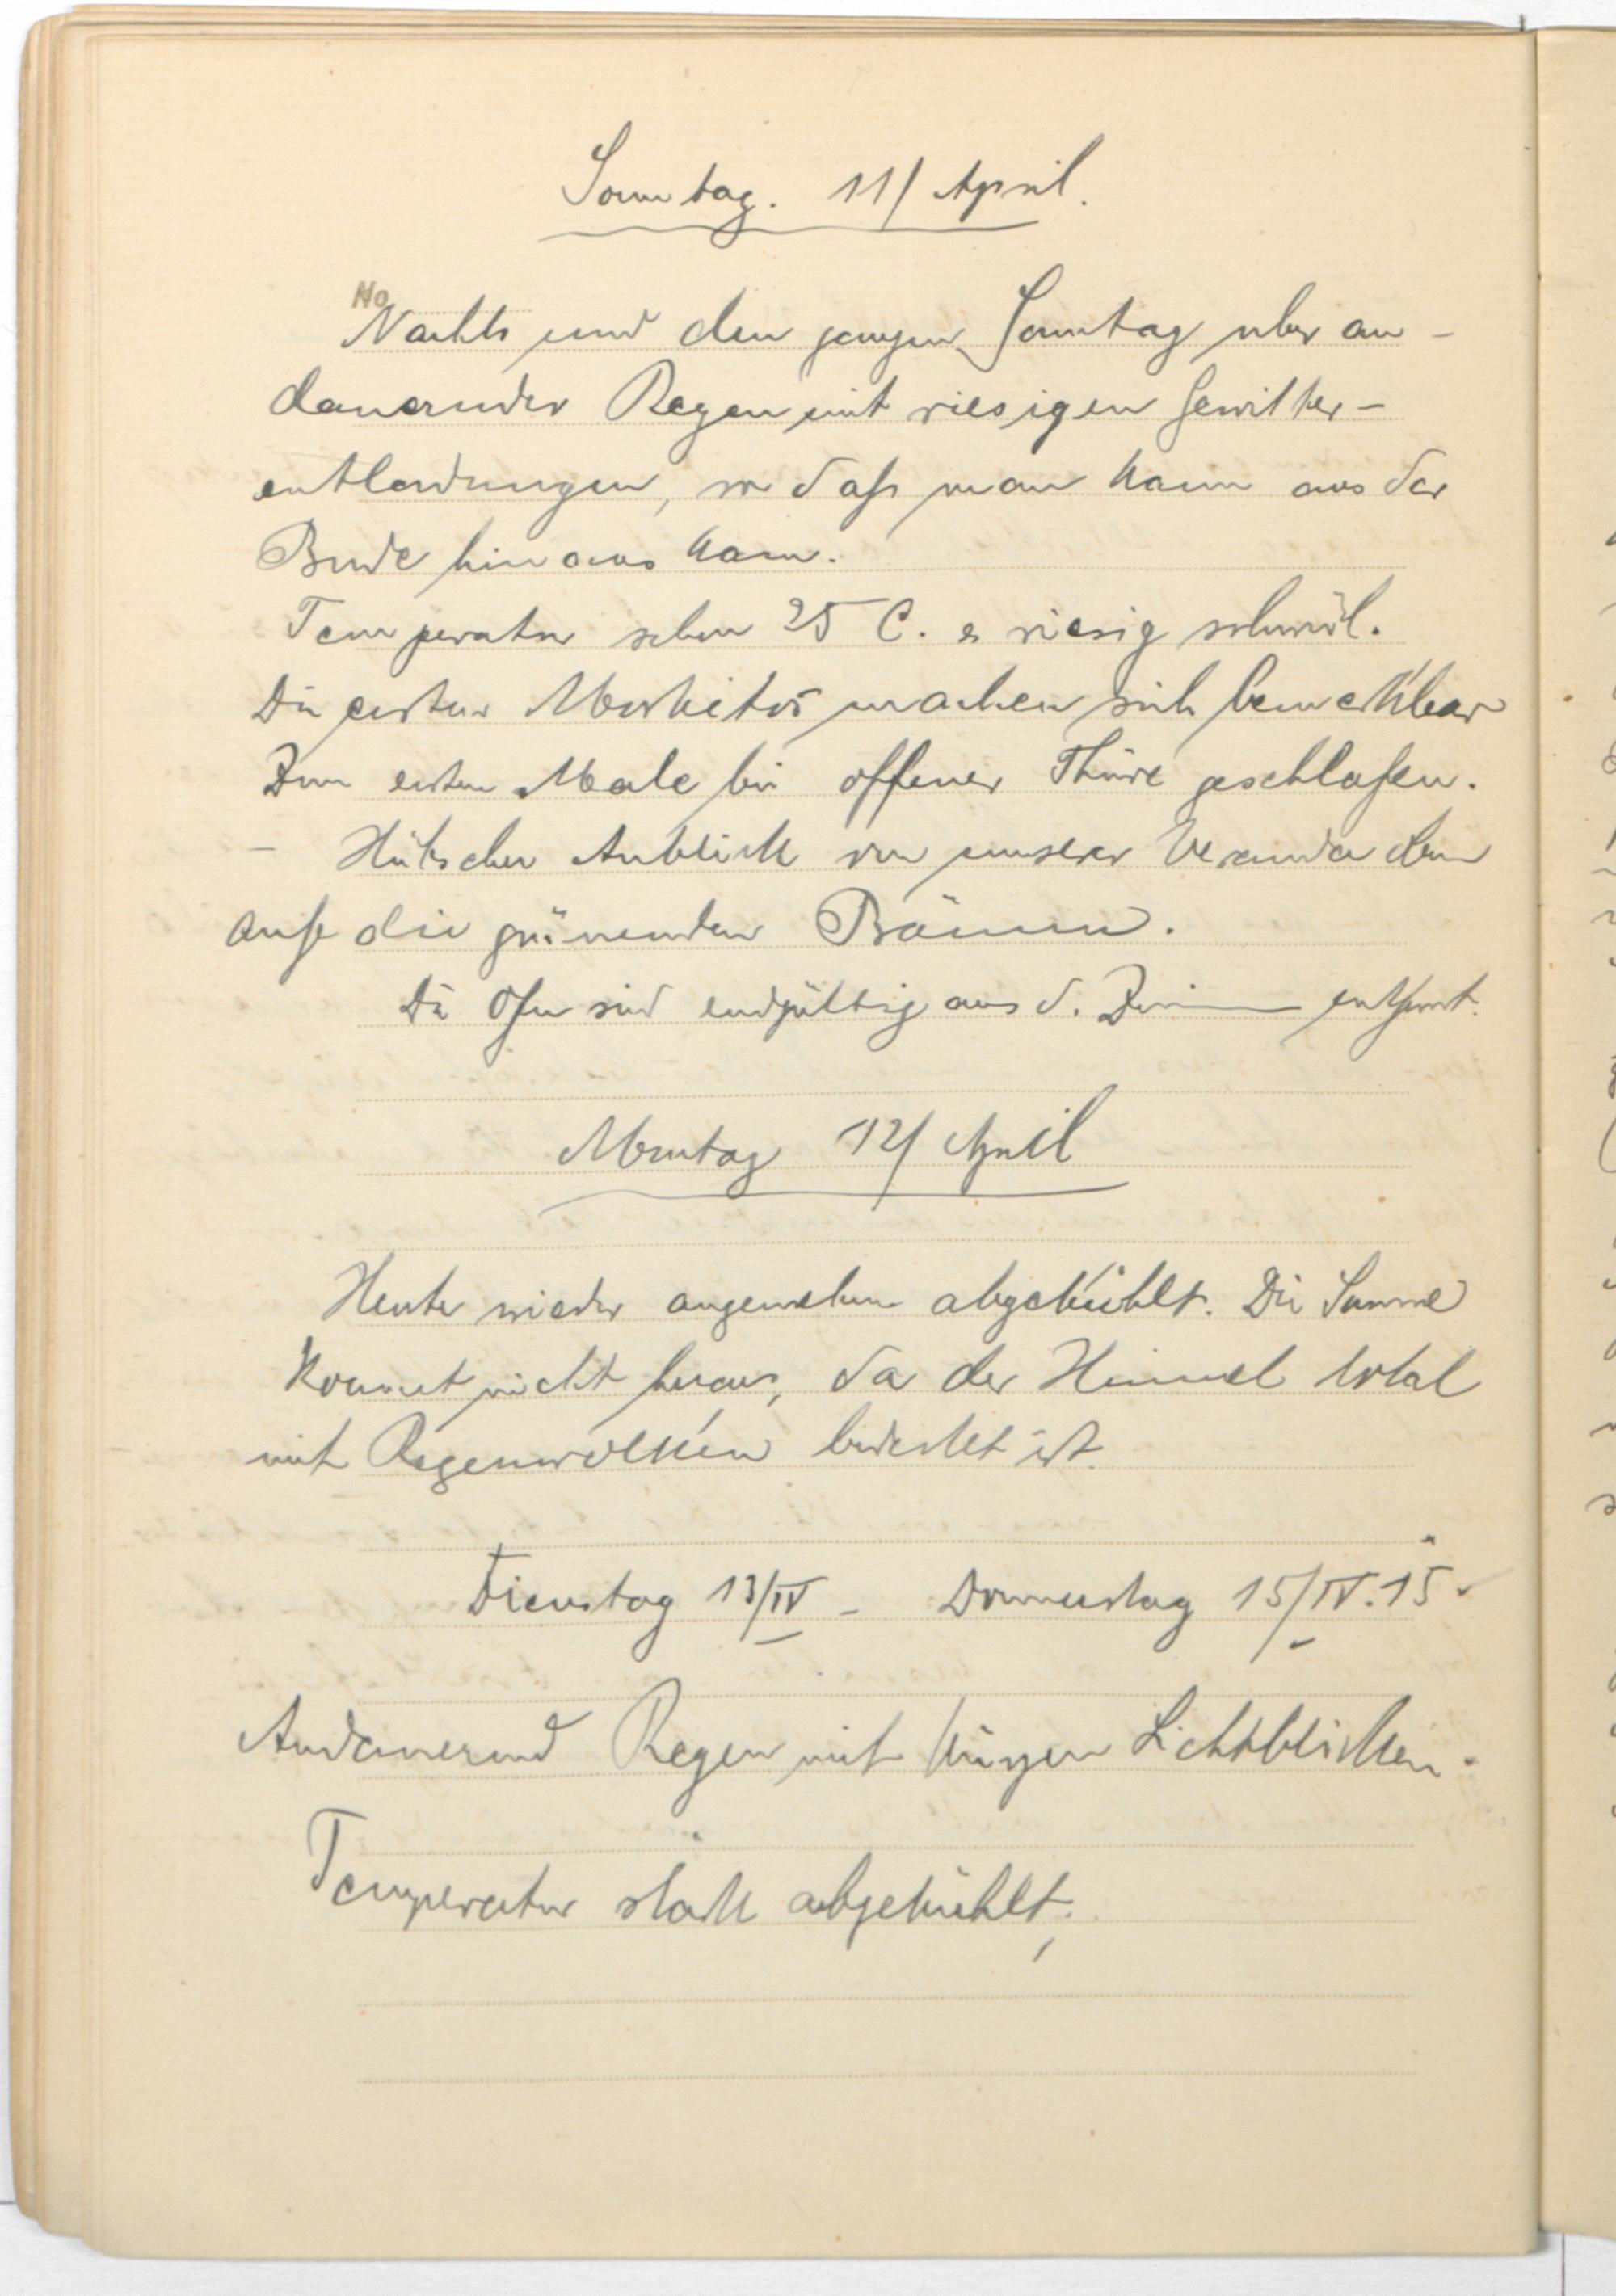 Sonntag. 11/ April.
No
Nachts und den ganzen Sonntag über an-
dauernder Regen mit riesigen Gewitter-
entladungen, so daß man kaum aus der
Bude hinaus kam.
Temperatur schon 25 C. riesig schwül.
Die ersten Moskitos machen sich bemerkbar
Zum ersten Male bei offener Thüre geschlafen.
- Hübscher Anblick von unserer Veranda
auf die grünenden Bäume.
Die Öfen sind endgültig aus d. Zimmern entfernt.
Montag 12/ April
Heute wieder angenehm abgekühlt. Die Sonne
kommt nicht heraus, da der Himmel total
mit Regenwolken bedeckt ist.
Dienstag 13/IV - Donnerstag 15/IV.15.
Andauernd Regen mit kurzen Lichtblicken.
Temperatur stark abgekühlt.